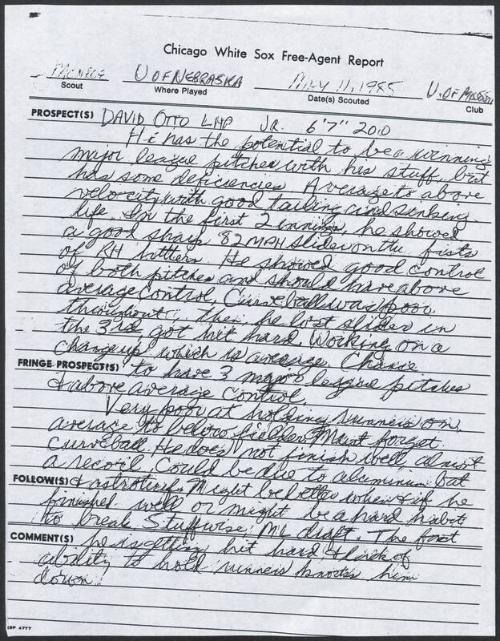 Chicago White Sox Free-Agent Report
U OF NEBRASKA MAY 11, 1985 U. OF MISSOURI
Scout Where Played Date(s) Scouted Club
PROSPECT(S) DAVID OTTO LHP JR. 6'7" 200
He has the potential to be a winning
major league pitcher with his stuff, but
has some deficiencies. Average to above
velocity with good tailing and sinking
life. In the first 2 innings, he showed
a good sharp 82 MPH slider on the fists
of RH hitters. He showed good control
of both pitches and should have above
average control. Curveball was poor
throughout; then he lost slider in
the 3rd got hit hard. Working on a
changeup which is average. Chance
FRINGE PROSPECT(S) to have 3 major league pitches
& above average control.
Very poor at holding runners on,
average to below fielder. Must forget
curveball. He does not finish well, almost
a recoil. Could be due to aluminum bat
FOLLOW(S) & astroturf. Might be better when & if he
finished well or might be a hard habit
to break. Stuffwise: ML draft. The fact
COMMENT(S) he is getting hit hard & lack of
ability to hold runners knocks him
down.
CBP 4777